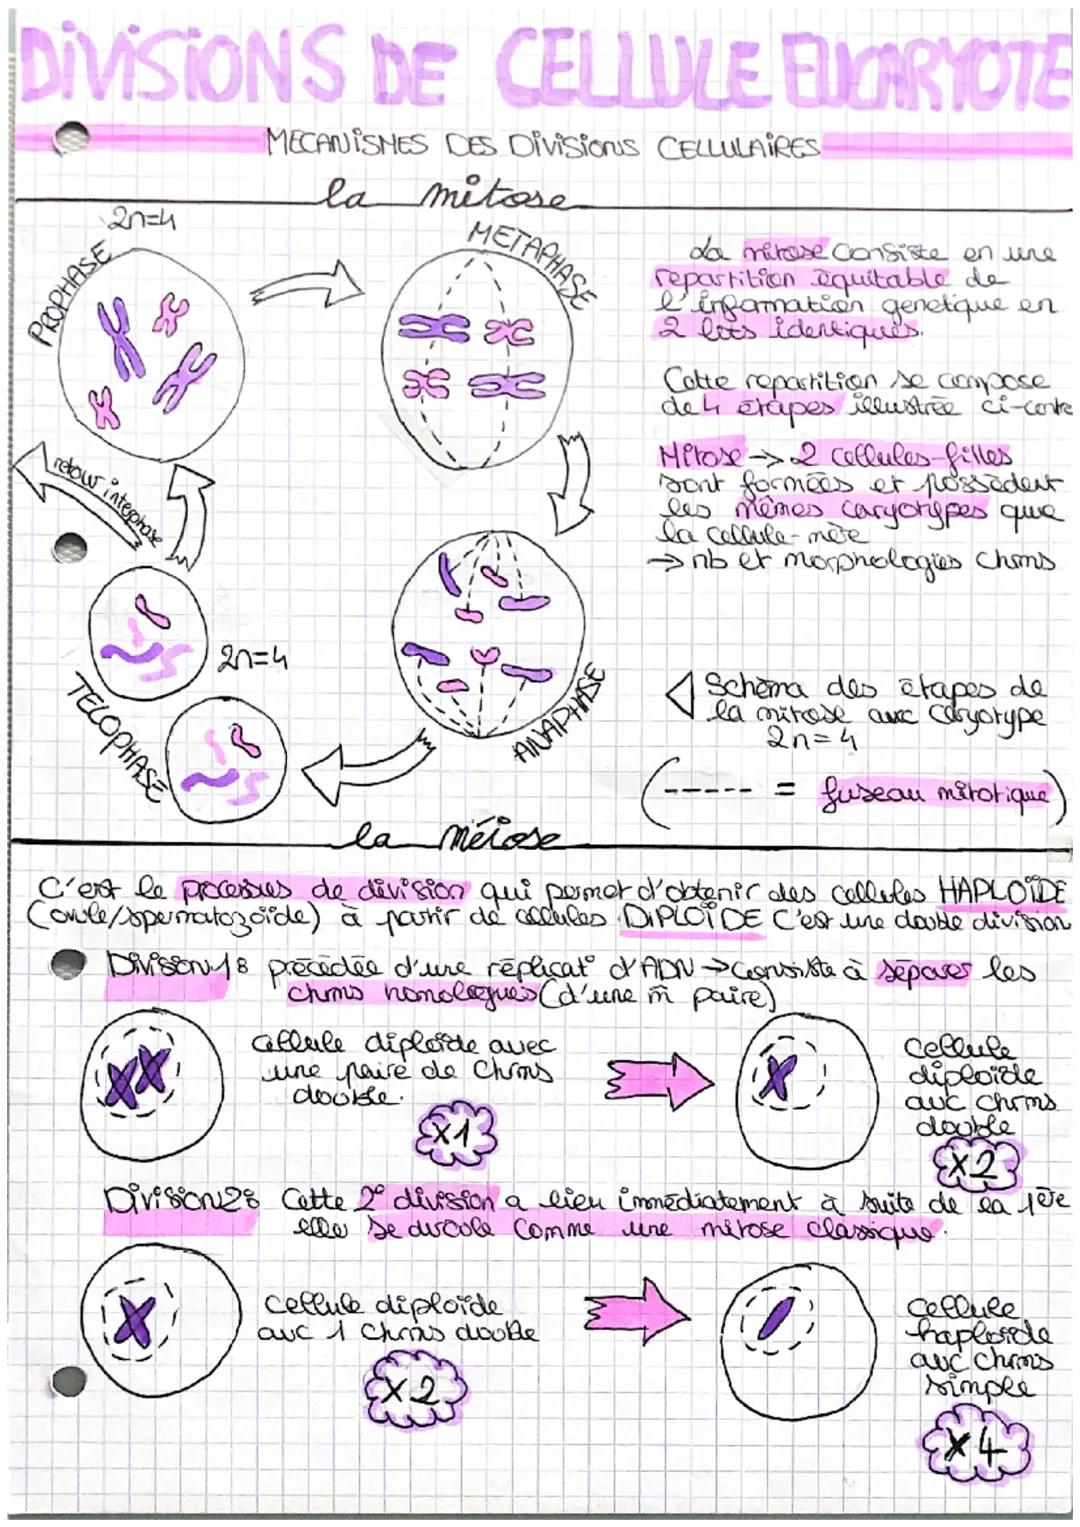 DIVISIONS DE CELLULE EUCARYOTE
MECANISMES DES DIVISIONS CELLULAIRES
la mitose
2n=4
PROPHASE
METAPHASE
La mitose consiste en une
repartition équitable de
l'information genetique en
2 lots identiques.
Cette repartition se compose
de 4 étapes illustrée ci-contre
Mitose → 2 cellules-filles
sont formées et possèdent
les mêmes caryotypes que
la cellule-mère
→ nb et morphologies chrms
retour interphase
2n=4
TELOPHASE
ANAPHASE
Schéma des étapes de
la mitose avc caryotype
2n=4
(----- = fuseau mitotique)
la méiose
C'est le processus de division qui permet d'obtenir des cellules HAPLOÏDE
(ovule/spermatozoïde) à partir de cellules DIPLOÏDE C'est une double division
Division 1: précédée d'une réplicat° d'ADN → consiste à séparer les
chrms homologues (d'une m̂ paire)
cellule diploïde avec
une paire de chrms
double.
x1
cellule
diploïde
avc chrms
double
x2
Division 2: Cette 2e division a lieu immédiatement à suite de la 1ère
elle se déroule comme une mitose classique.
cellule diploïde
avc 1 chrms double
x2
cellule
haploïde
avc chrms
simple
x4